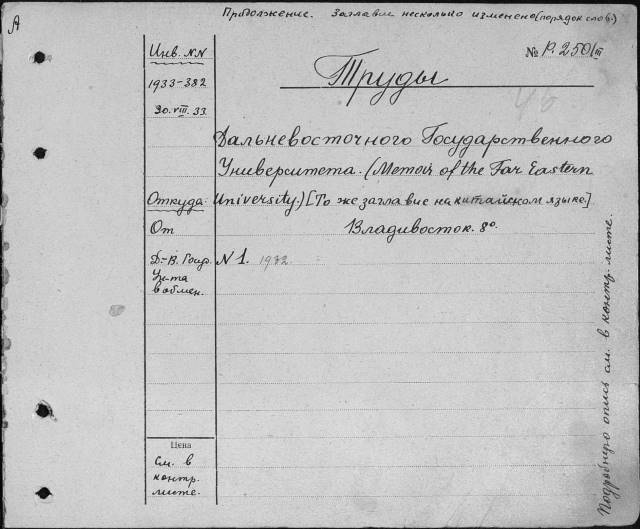 А
Продолжение. Заглавие несколько изменено (порядок слов.)
Инв. NN
№ P. 2501 III
1933-382
Труды
30. VIII. 33.
Дальневосточного Государственного
Университета. (Memoir of the Far Eastern
Откуда: University.) [То же заглавие на китайском языке.]
От
Владивосток. 8º.
Д.-В. Госуд. N 1. 1932.
Ун-та
в обмен.
Цена
См. в
контр.
листе.
Подробную опись см. в контр. листе.